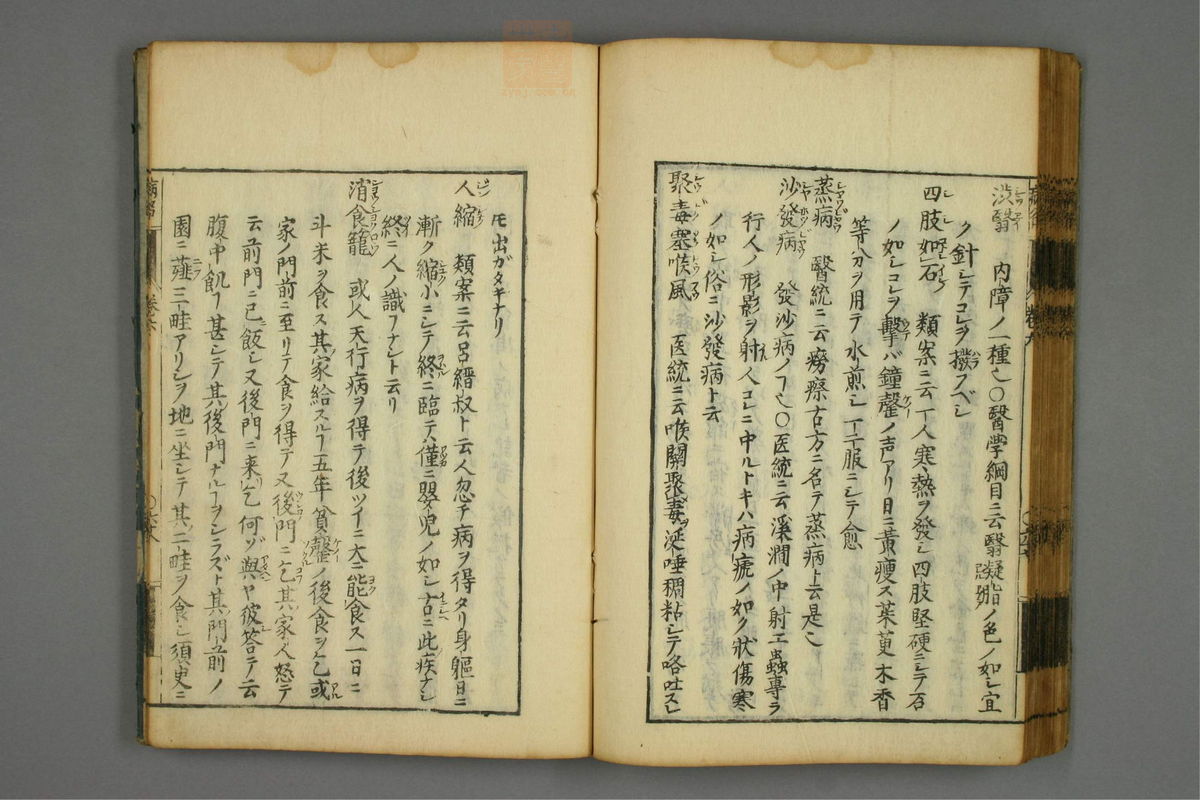 渋翳 内障ノ一種也〇醫学綱目ニ云翳凝脂ノ色ノ如シ宜
ク針シテコレヲ撥フベシ
四肢如石 類案ニ云一人寒熱ヲ發シ四肢堅硬ニシテ石
ノ如シコレヲ擊バ鐘磬ノ声アリ日ニ黄瘦ス茱萸木香
等分ヲ用テ水煎シ一二服ニシテ愈
蒸病 醫統ニ云癆瘵古方ニ名テ蒸病ト云是也
沙發病 發沙病ノ也〇医統ニ云溪澗ノ中射工蟲專ラ
行人ノ形影ヲ射人コレニ中ルトキハ病瘧ノ如ク状傷寒
ノ如シ俗ニ沙發病ト云
聚毒塞喉風 医統ニ云喉關聚毒涎唾稠粘シテ咯吐スレ
モ出ガタキナリ
人縮 類案ニ云呂縉叔ト云人忽チ病ヲ得タリ身軀日ニ
漸ク縮小ニシテ終ニ臨テハ僅ニ嬰児ノ如シ古ニ此疾ナシ
終ニ人ノ識フナシト云リ
消食籠 或人天行病ヲ得テ後ツイニ大ニ能食ス一日ニ
斗米ヲ食ス其家給スル五年貧罄ノ後食ヲ乞或
家ノ門前ニ至リテ食ヲ得テ又後門ニ乞其家人怒テ
云前門ニ已飯シ又後門ニ来乞何ゾ與ヤ彼答テ云
腹中飢フ甚シテ其後門ナルヲシラズト其門前ノ
園ニ薤三畦アリシヲ地ニ坐シテ其二畦ヲ食シ須臾ニ
巻六